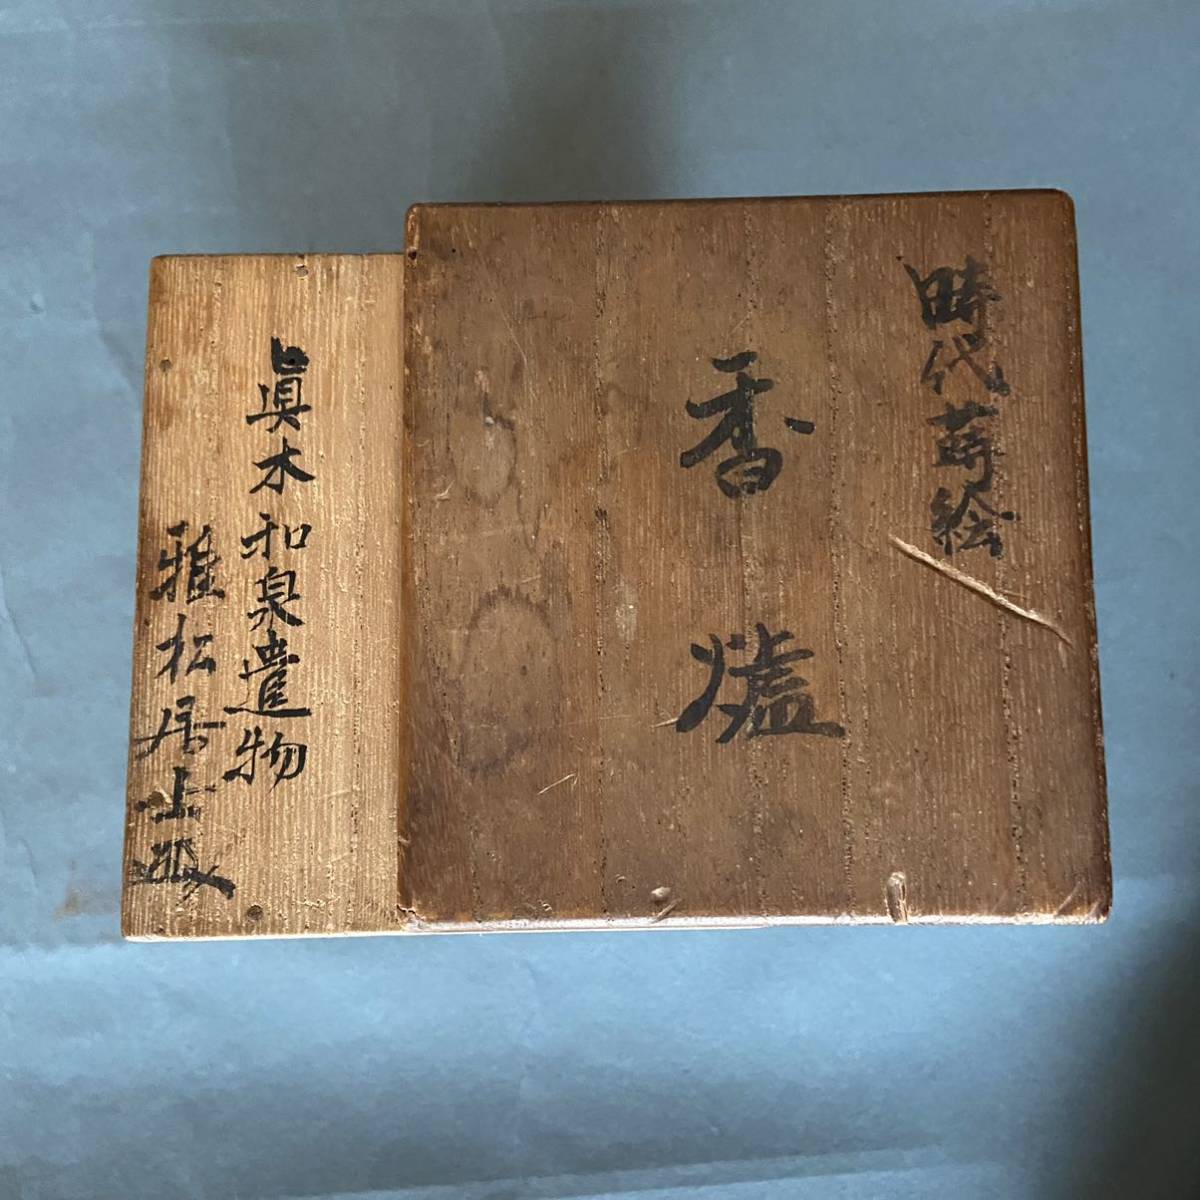 時代蒔絵
香爐
眞木和泉遺物
雅松居士